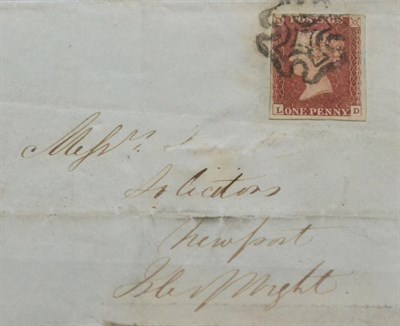 POSTAGE
ONE PENNY
L D
Messrs.
Solicitors
Newport
Isle of Wight.